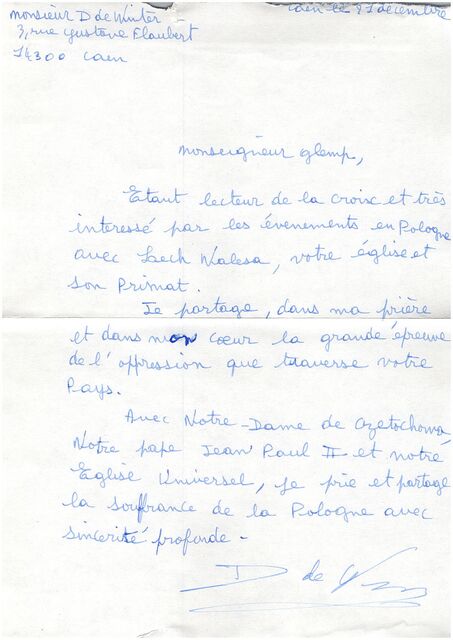 monsieur D de Winter
3, rue Gustave Flaubert
14300 Caen
Caen le 27 décembre
Monseigneur Glemp,
Etant lecteur de la Croix et très
interessé par les évenements en Pologne
avec Lech Walesa, votre église et
son Primat.
Je partage, dans ma prière
et dans mon coeur la grande épreuve
de l'oppression que traverse votre
Pays.
Avec Notre-Dame de Czetochowa,
Notre pape Jean Paul II et notre
Eglise Universel, je prie et partage
la souffrance de la Pologne avec
sincerité profonde -
D de